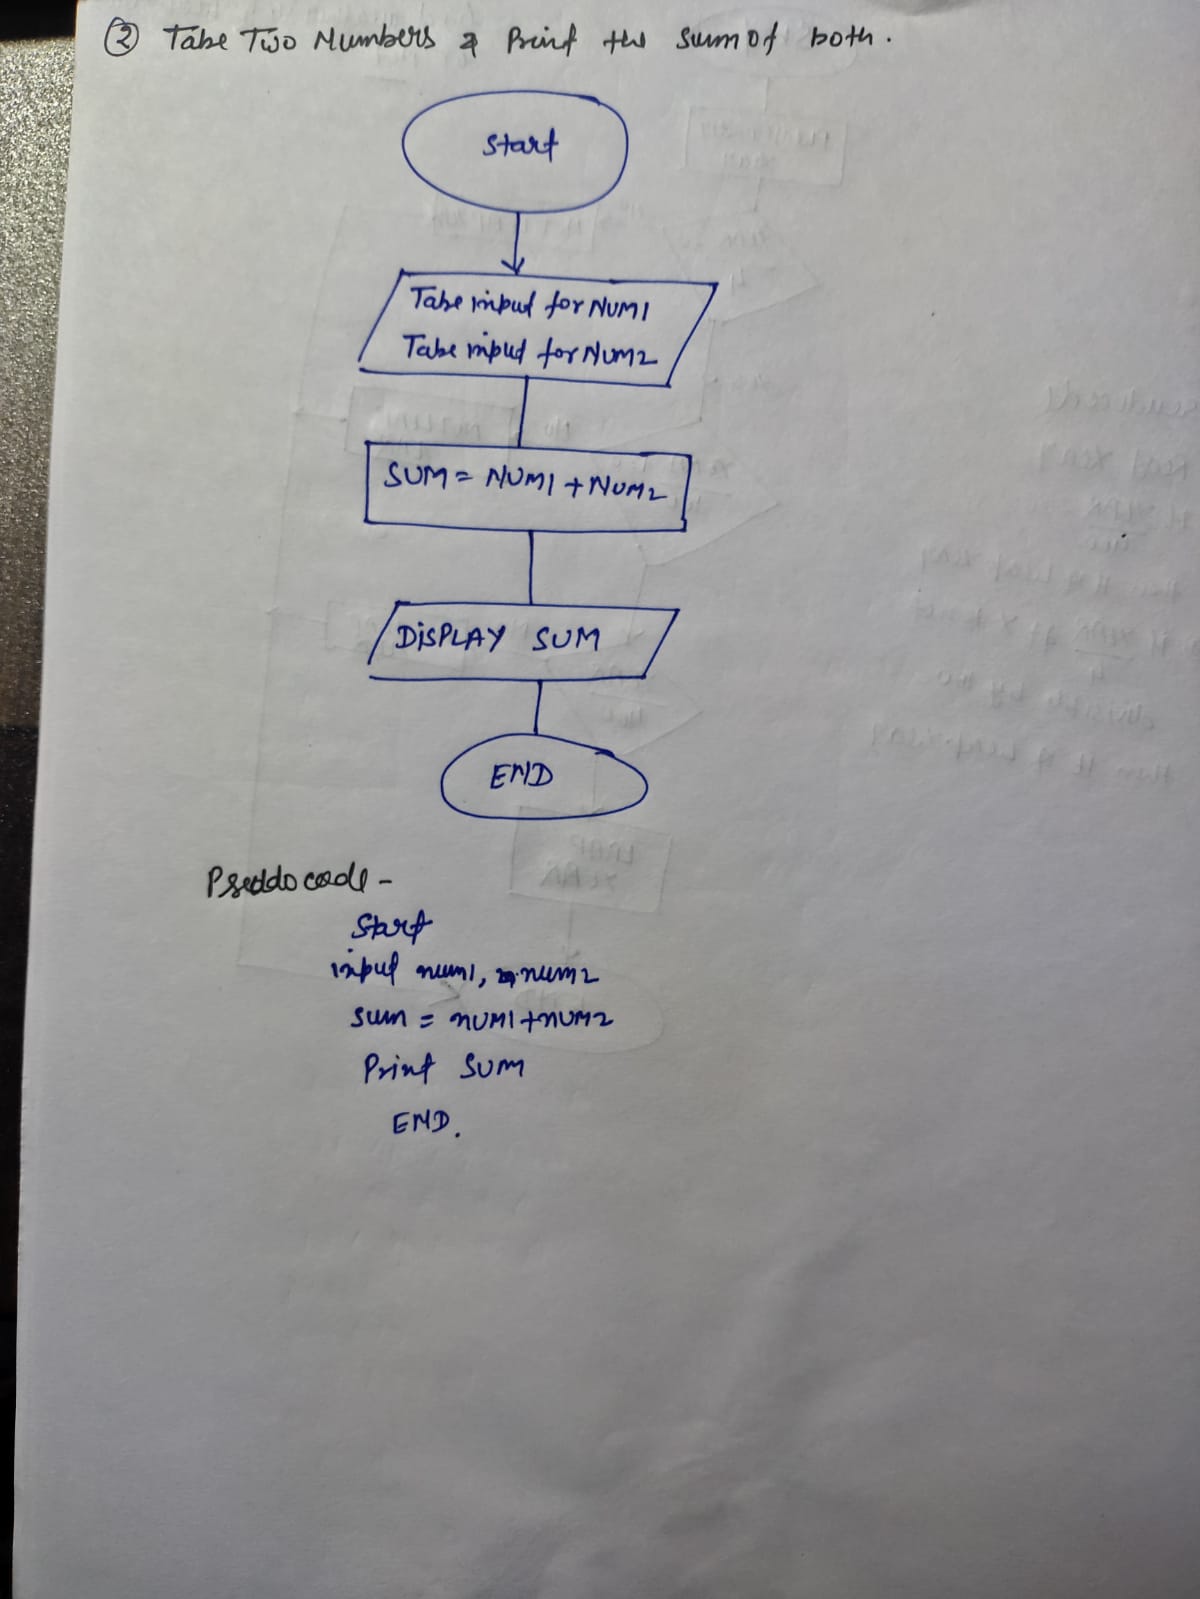 ② Take Two Numbers & Print the sum of both.
Start
Take input for NUM1
Take input for NUM2
SUM = NUM1 + NUM2
DISPLAY SUM
END
Pseddo code -
Start
input num1, num2
sum = NUM1+NUM2
Print SUM
END.